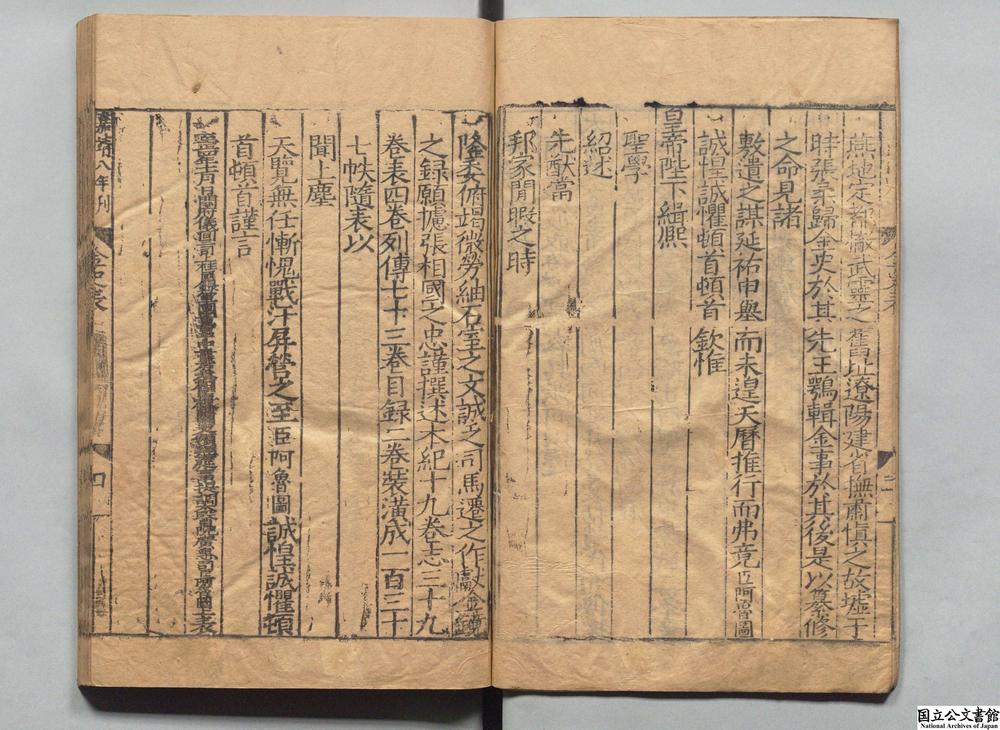 燕地定都厭武靈之舊址遼陽建省撫肅愼之故墟于
時張柔歸金史於其先王鶚輯金事於其後是以纂修
之命見諸
敷遺之謀延祐申舉而未遑天曆推行而弗竟臣阿魯圖
誠惶誠懼頓首頓首欽惟
皇帝陛下緝熙
聖學
紹述
先猷當
邦家閒暇之時
隆委俯竭微勞紬石室之文誠乏司馬遷之作獻金鏡
之録願攄張相國之忠謹撰述本紀十九卷志三十九
卷表四卷列傳七十三卷目録二卷裝潢成一百三十
七帙隨表以
聞上塵
天覽無任慚愧戰汗屏營之至臣阿魯圖誠惶誠懼頓
首頓首謹言
嘉靖八年刊
金史表
四
国立公文書館
National Archives of Japan